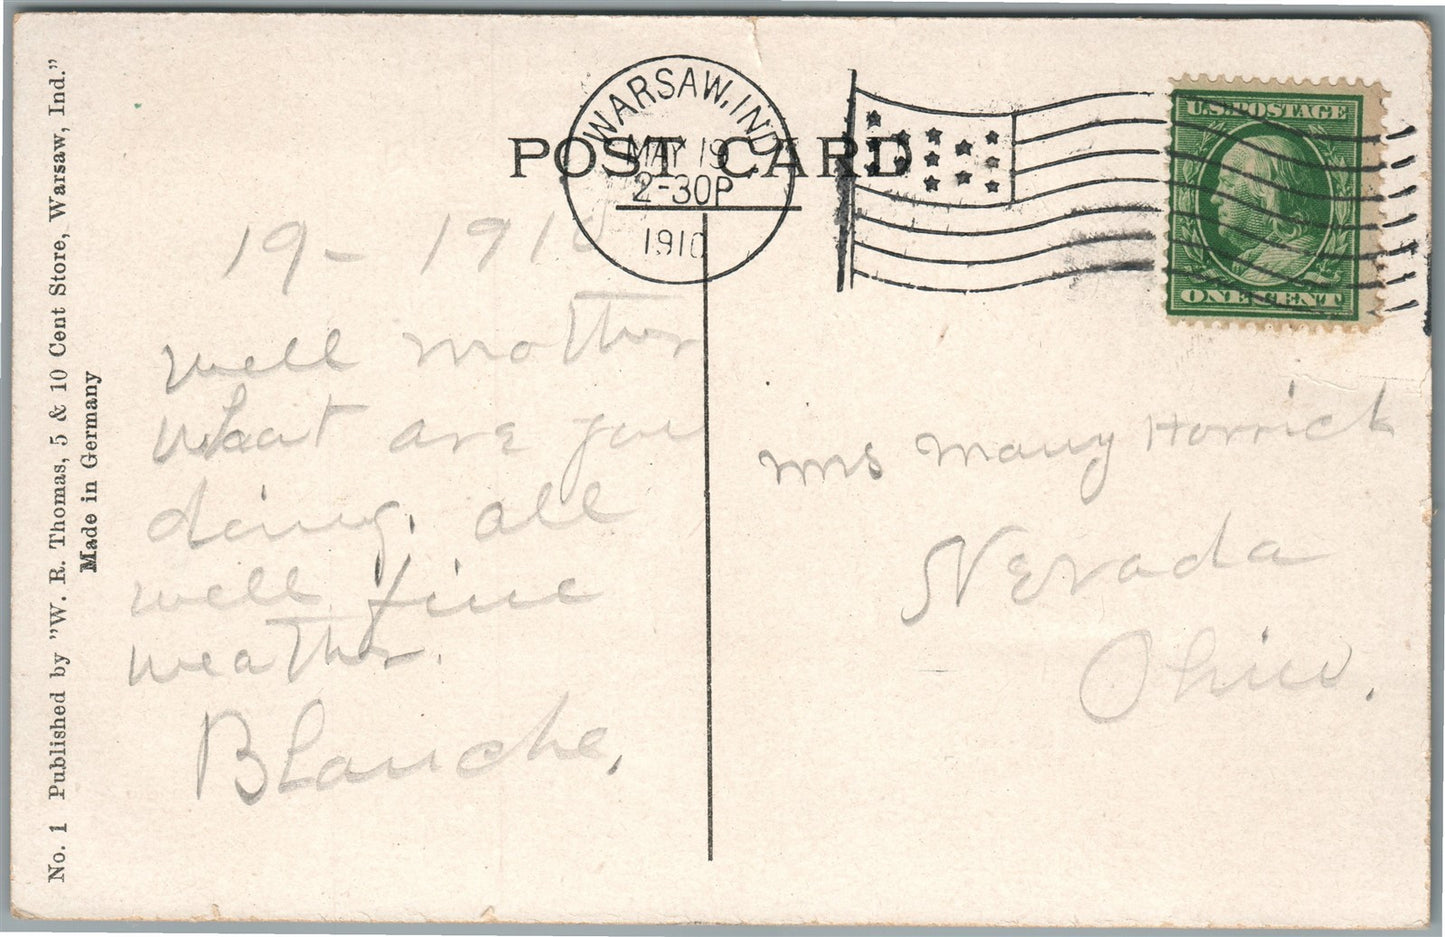 No. 1 Published by "W. R. Thomas, 5 & 10 Cent Store, Warsaw, Ind."
Made in Germany
POST CARD
WARSAW, IND.
MAY 19
2-30P
1910
U.S. POSTAGE
ONE CENT
19 - 1910
well mother
what are you
doing. all
well fine
weather.
Blanche,
mrs mary Horrick
Nevada
Ohio.